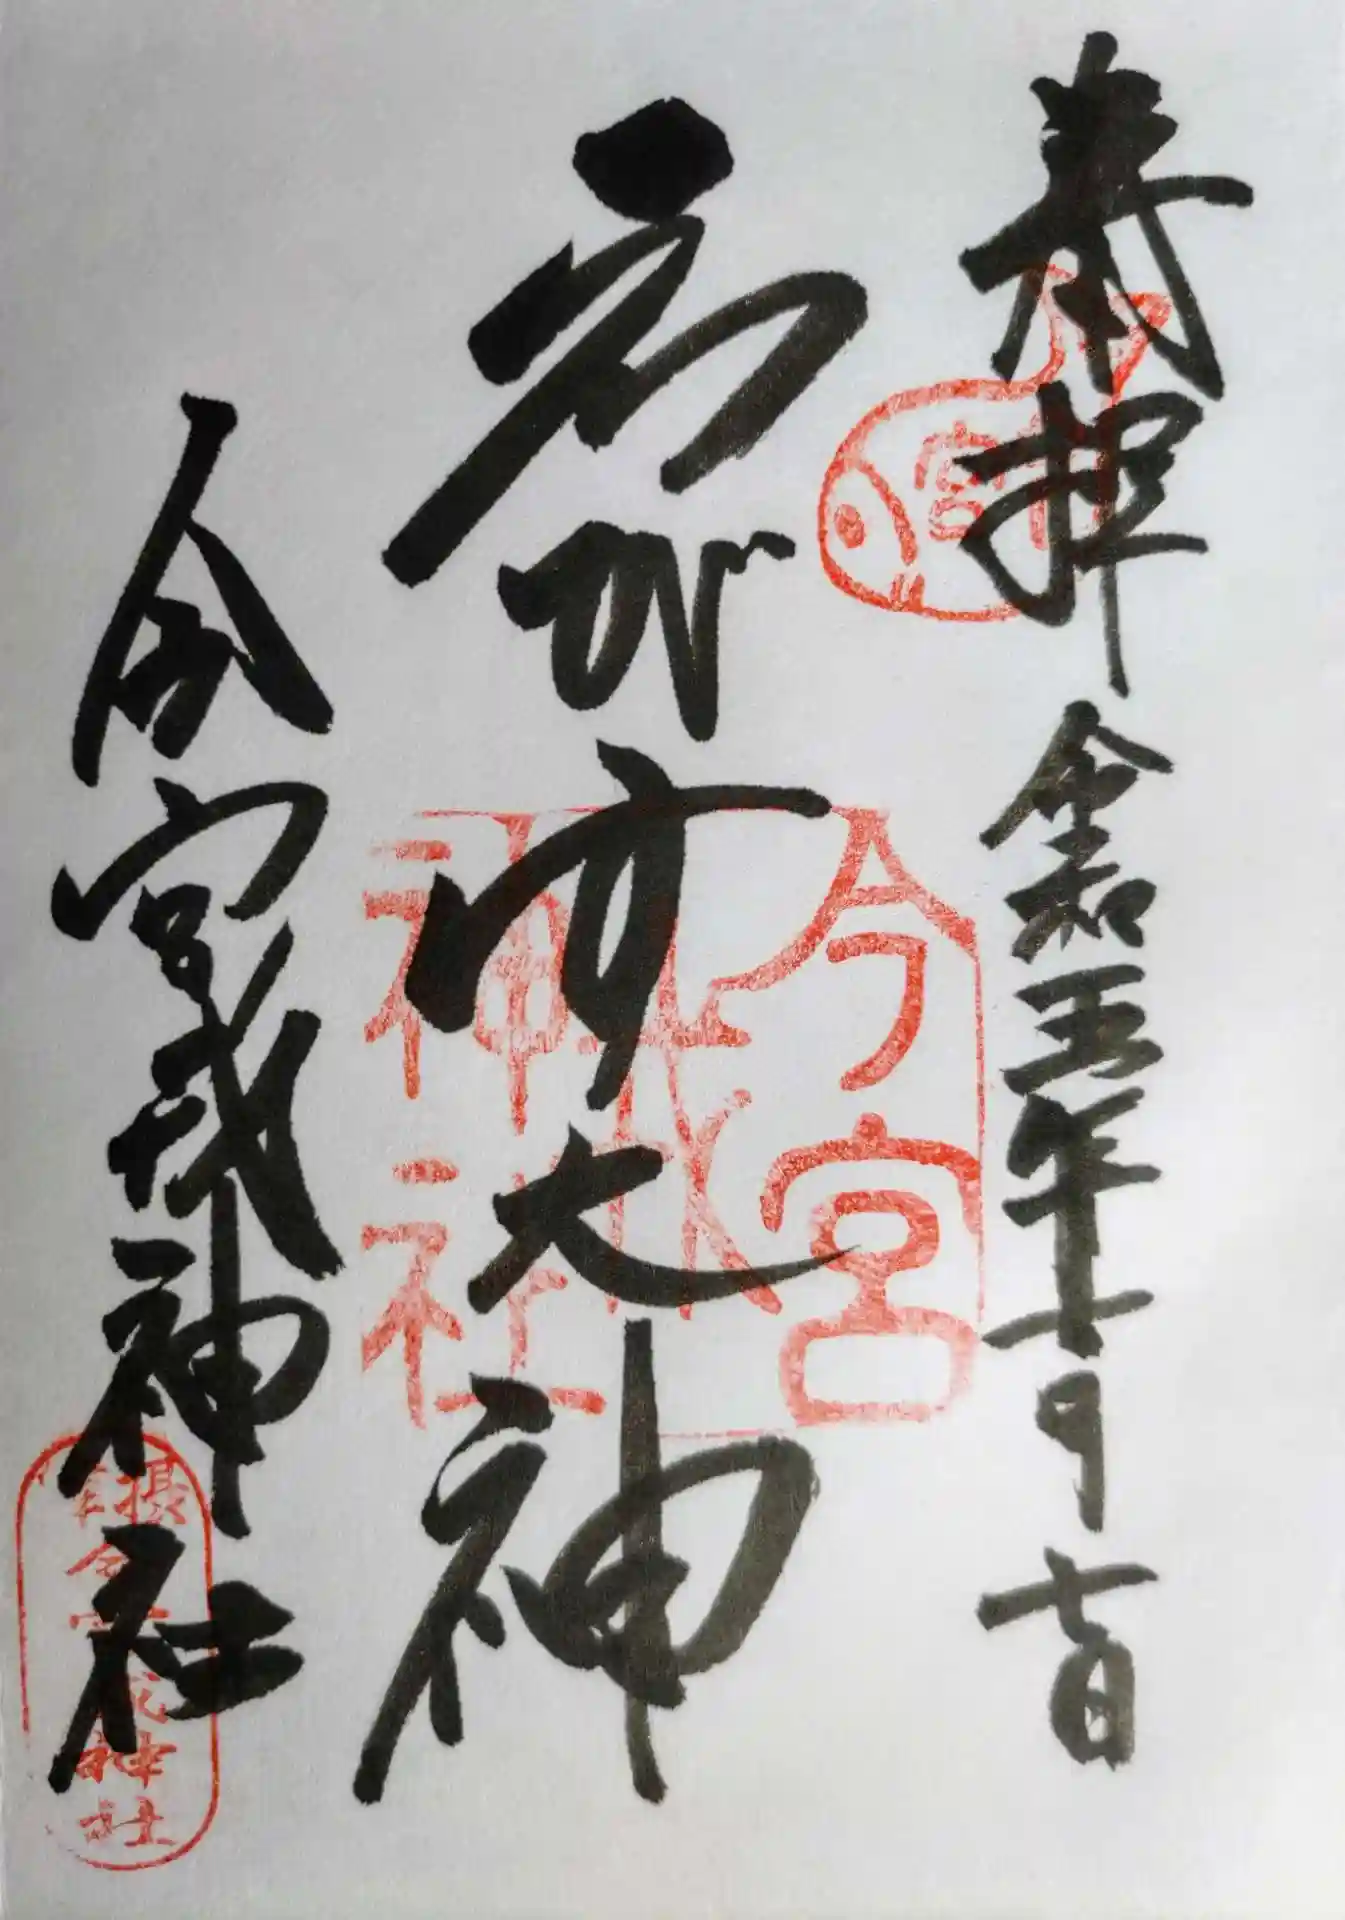 奉拝 令和五年十一月七日
ゑびす大神
今宮戎神社
今宮
戎
神社
摂津
今宮戎神社